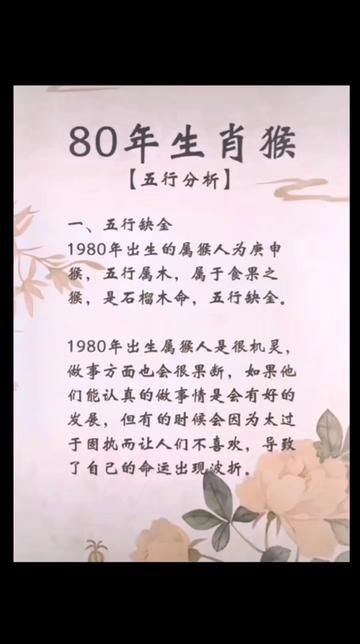 80年生肖猴
【五行分析】
一、五行缺金
1980年出生的属猴人为庚申
猴，五行属木，属于食果之
猴，是石榴木命，五行缺金。
1980年出生属猴人是很机灵，
做事方面也会很果断，如果他
们能认真的做事情是会有好的
发展，但有的时候会因为太过
于固执而让人们不喜欢，导致
了自己的命运出现波折。